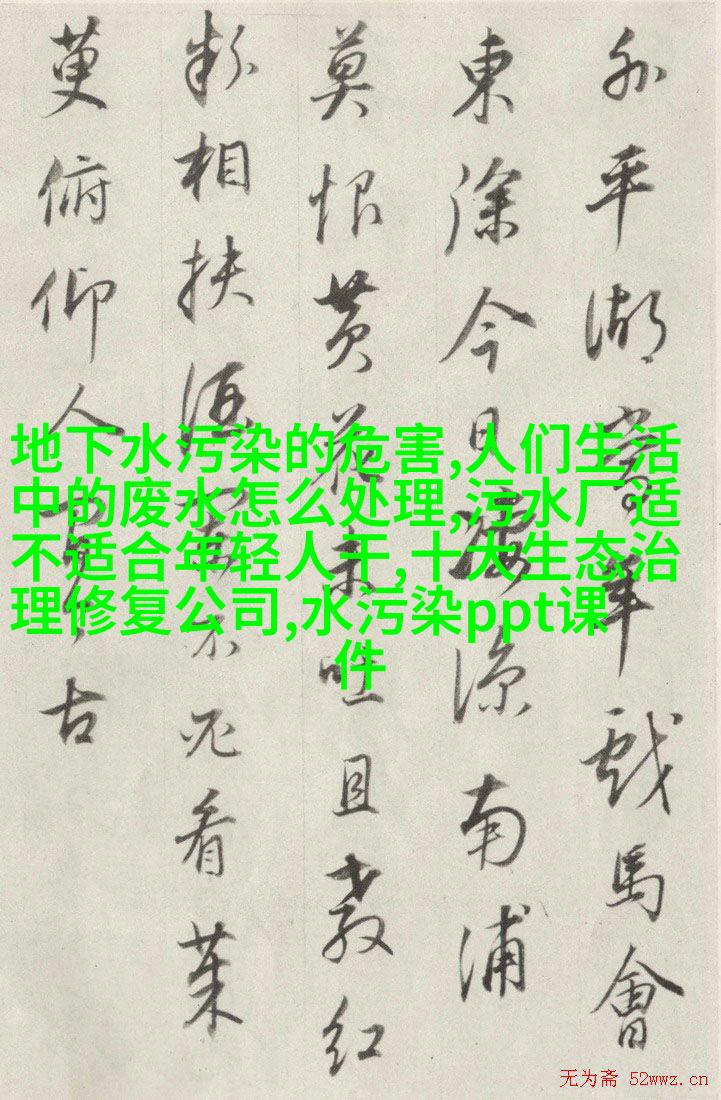 外平湖當年戲馬會
東徐今日凄涼南浦
莫恨黄花未吐且教红
粉相扶酒闌不必看茱
萸俯仰人間今古
地下水污染的危害,人们生活
中的废水怎么处理,污水厂适
不适合年轻人干,十大生态治
理修复公司,水污染ppt课
件
无为斋 52wwz.cn